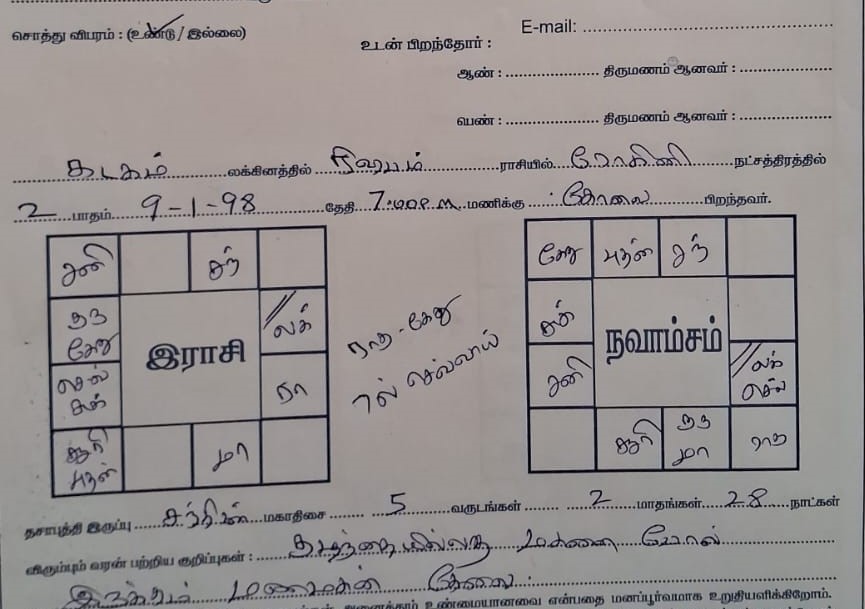 சொத்து விபரம் : (உண்டு / இல்லை)
E-mail: ........................
உடன் பிறந்தோர் :
ஆண் : ........................ திருமணம் ஆனவர் : ........................
பெண் : ........................ திருமணம் ஆனவர் : ........................
கடகம் லக்கினத்தில் ரிஷபம் ராசியில் ரோகிணி நட்சத்திரத்தில்
2 பாதம் 9-1-98 தேதி 7.00 P.M. மணிக்கு கோவை பிறந்தவர்.
சனி சந்
குரு கேது லக்
இராசி
செவ் சுக் ரா
சூரி புதன் மா
ராகு - கேது
7ல் செவ்வாய்
கேது புதன் சந்
சுக்
நவாம்சம்
சனி லக் செவ்
சூரி குரு மா ராகு
தசாபுத்தி இருப்பு சந்திரன் மகாதிசை 5 வருடங்கள் 2 மாதங்கள் 28 நாட்கள்
விரும்பும் வரன் பற்றிய குறிப்புகள் : மகனை போல்
இருக்கும் மணமகன் தேவை
அனைத்தும் உண்மையானவை என்பதை மனப்பூர்வமாக உறுதியளிக்கிறோம்.